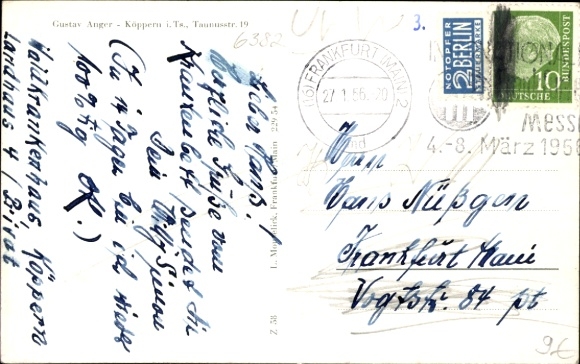 Gustav Anger - Köppern i.Ts., Taunusstr. 19
6382
3.
Lieber Hans!
Herzliche Grüße vom
Krankenbett sendet Dir
Dein Willy Simon
(In 14 Tagen bin ich wieder
100%ig OK.)
Waldkrankenhaus Köppern
Landhaus 4 (Privat
L. Momblick, Frankfurt Main 229 54
Z 58
(16) FRANKFURT (MAIN) 2
27.1.56.-20
NOTOPFER
2 BERLIN
STEUERMARKE
DEUTSCHE
BUNDESPOST
10
Messe
4.-8. März 1956
Herrn
Hans Nüßgen
Frankfurt Main
Vogtstr. 84 pt
9€